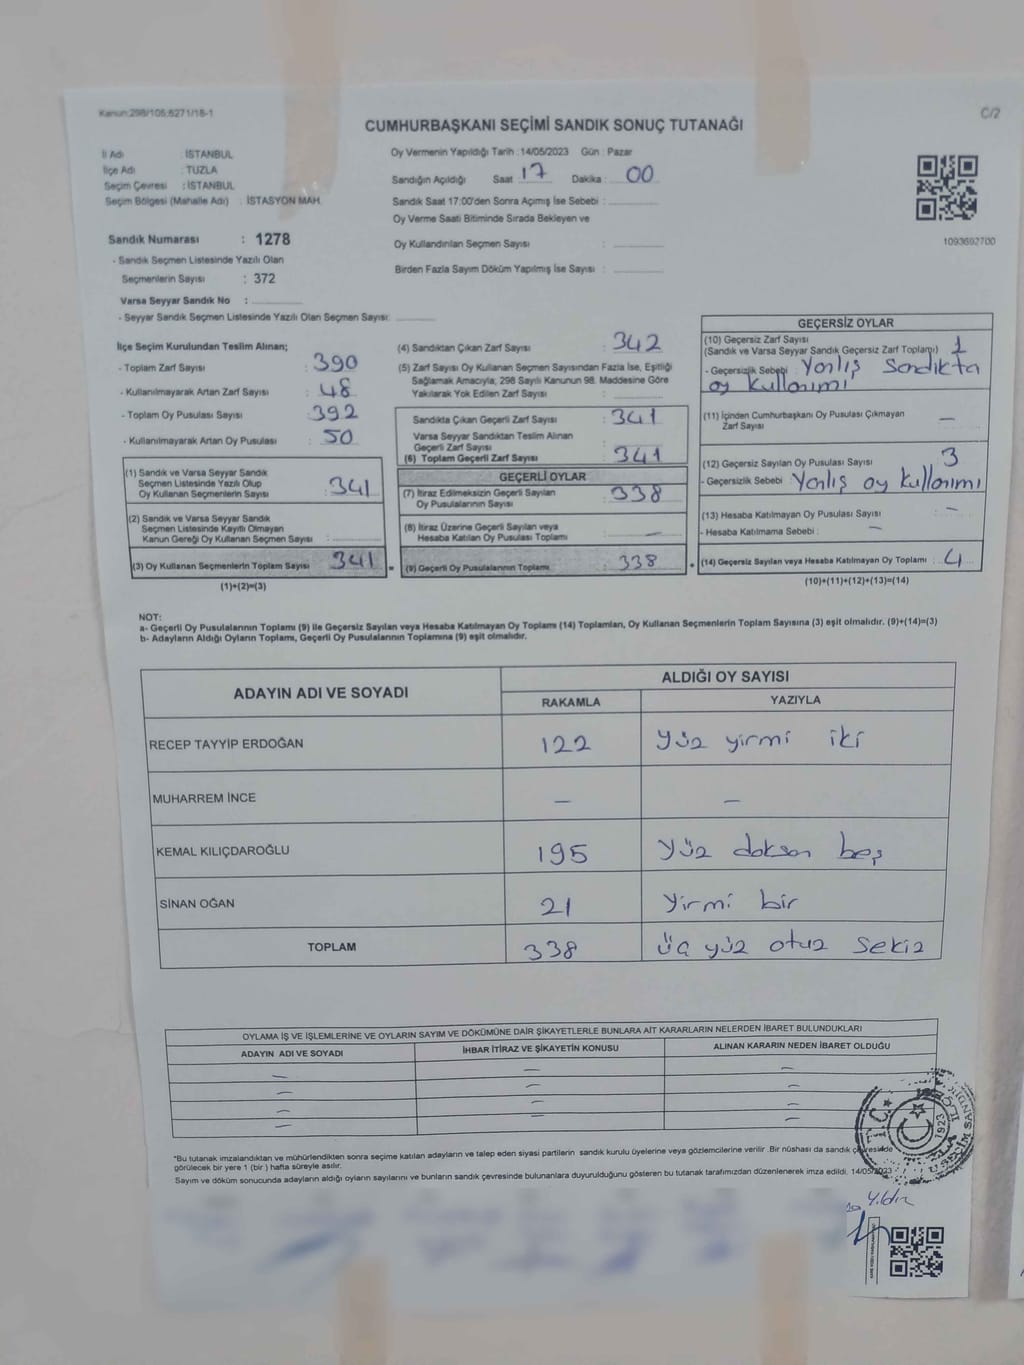 Kanun:298/105;6271/18-1
C/2
CUMHURBAŞKANI SEÇİMİ SANDIK SONUÇ TUTANAĞI
İl Adı : İSTANBUL
İlçe Adı : TUZLA
Seçim Çevresi : İSTANBUL
Seçim Bölgesi (Mahalle Adı) : İSTASYON MAH.
Oy Vermenin Yapıldığı Tarih :14/05/2023 Gün : Pazar
Sandığın Açıldığı Saat 17 Dakika : 00
Sandık Saat 17:00'den Sonra Açımış İse Sebebi :
Oy Verme Saati Bitiminde Sırada Bekleyen ve
Oy Kullandırılan Seçmen Sayısı :
Birden Fazla Sayım Döküm Yapılmış İse Sayısı :
1093692700
Sandık Numarası : 1278
- Sandık Seçmen Listesinde Yazılı Olan
Seçmenlerin Sayısı : 372
Varsa Seyyar Sandık No :
- Seyyar Sandık Seçmen Listesinde Yazılı Olan Seçmen Sayısı:
İlçe Seçim Kurulundan Teslim Alınan;
- Toplam Zarf Sayısı : 390
- Kullanılmayarak Artan Zarf Sayısı : 48
- Toplam Oy Pusulası Sayısı : 392
- Kullanılmayarak Artan Oy Pusulası : 50
(1) Sandık ve Varsa Seyyar Sandık
Seçmen Listesinde Yazılı Olup
Oy Kullanan Seçmenlerin Sayısı : 341
(2) Sandık ve Varsa Seyyar Sandık
Seçmen Listesinde Kayıtlı Olmayan
Kanun Gereği Oy Kullanan Seçmen Sayısı :
(3) Oy Kullanan Seçmenlerin Toplam Sayısı : 341
(1)+(2)=(3)
(4) Sandıktan Çıkan Zarf Sayısı : 342
(5) Zarf Sayısı Oy Kullanan Seçmen Sayısından Fazla İse, Eşitliği
Sağlamak Amacıyla; 298 Sayılı Kanunun 98. Maddesine Göre
Yakılarak Yok Edilen Zarf Sayısı :
Sandıkta Çıkan Geçerli Zarf Sayısı : 341
Varsa Seyyar Sandıktan Teslim Alınan
Geçerli Zarf Sayısı
(6) Toplam Geçerli Zarf Sayısı : 341
GEÇERLİ OYLAR
(7) İtiraz Edilmeksizin Geçerli Sayılan
Oy Pusulalarının Sayısı : 338
(8) İtiraz Üzerine Geçerli Sayılan veya
Hesaba Katılan Oy Pusulası Toplamı : —
(9) Geçerli Oy Pusulalarının Toplamı : 338
GEÇERSİZ OYLAR
(10) Geçersiz Zarf Sayısı
(Sandık ve Varsa Seyyar Sandık Geçersiz Zarf Toplamı) 1
- Geçersizlik Sebebi : Yanlış Sandıkta
oy kullanımı
(11) İçinden Cumhurbaşkanı Oy Pusulası Çıkmayan
Zarf Sayısı —
(12) Geçersiz Sayılan Oy Pusulası Sayısı : 3
- Geçersizlik Sebebi : Yanlış oy kullanımı
(13) Hesaba Katılmayan Oy Pusulası Sayısı : —
- Hesaba Katılmama Sebebi : —
(14) Geçersiz Sayılan veya Hesaba Katılmayan Oy Toplamı : 4
(10)+(11)+(12)+(13)=(14)
NOT:
a- Geçerli Oy Pusulalarının Toplamı (9) ile Geçersiz Sayılan veya Hesaba Katılmayan Oy Toplamı (14) Toplamları, Oy Kullanan Seçmenlerin Toplam Sayısına (3) eşit olmalıdır. (9)+(14)=(3)
b- Adayların Aldığı Oyların Toplamı, Geçerli Oy Pusulalarının Toplamına (9) eşit olmalıdır.
ADAYIN ADI VE SOYADI
ALDIĞI OY SAYISI
RAKAMLA YAZIYLA
RECEP TAYYİP ERDOĞAN 122 Yüz yirmi iki
MUHARREM İNCE — —
KEMAL KILIÇDAROĞLU 195 Yüz doksan beş
SİNAN OĞAN 21 Yirmi bir
TOPLAM 338 üç yüz otuz sekiz
OYLAMA İŞ VE İŞLEMLERİNE VE OYLARIN SAYIM VE DÖKÜMÜNE DAİR ŞİKAYETLERLE BUNLARA AİT KARARLARIN NELERDEN İBARET BULUNDUKLARI
ADAYIN ADI VE SOYADI İHBAR İTİRAZ VE ŞİKAYETİN KONUSU ALINAN KARARIN NEDEN İBARET OLDUĞU
— — —
— — —
— — —
— — —
*Bu tutanak imzalandıktan ve mühürlendikten sonra seçime katılan adayların ve talep eden siyasi partilerin sandık kurulu üyelerine veya gözlemcilerine verilir. Bir nüshası da sandık çevresinde
görülecek bir yere 1 (bir) hafta süreyle asılır.
Sayım ve döküm sonucunda adayların aldığı oyların sayılarını ve bunların sandık çevresinde bulunanlara duyurulduğunu gösteren bu tutanak tarafımızdan düzenlenerek imza edildi. 14/05/2023
T.C.
1923
Yıldız